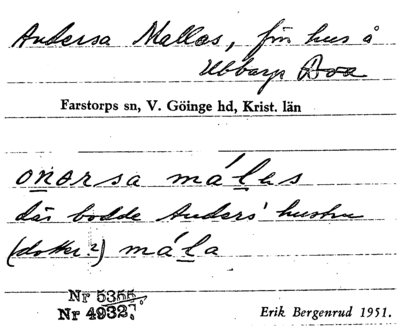 Andersa Mallas, fm hus å
Ubbarp Boa
Farstorps sn, V. Göinge hd, Krist. län
onərsa málas
där bodde Anders' hustru
(dotter?) mála
Nr 5355.
Nr 4932.
Erik Bergenrud 1951.